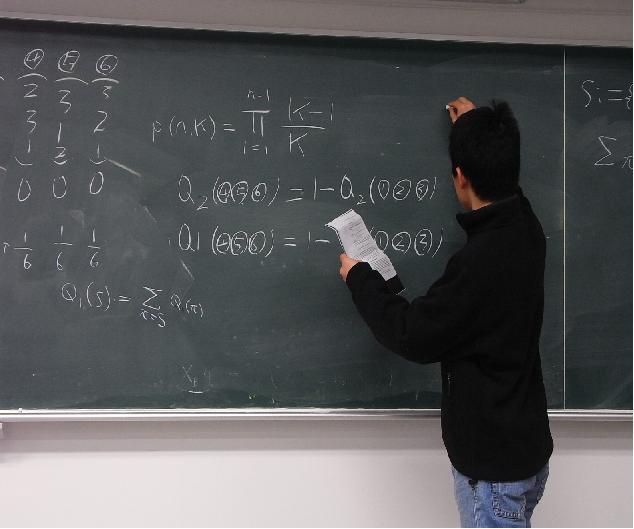 ④ ⑤ ⑥
2 3 3
3 1 2
1 2 1
0 0 0
1/6 1/6 1/6
p(n,K) = ∏_{i=1}^{n-1} (K-1)/K
Q₂(④⑤⑥) = 1-Q₂(①②③)
Q1(④⑤⑥) = 1- ①②③)
Q₁(S) = Σ Q(π)
Si={
Σπ